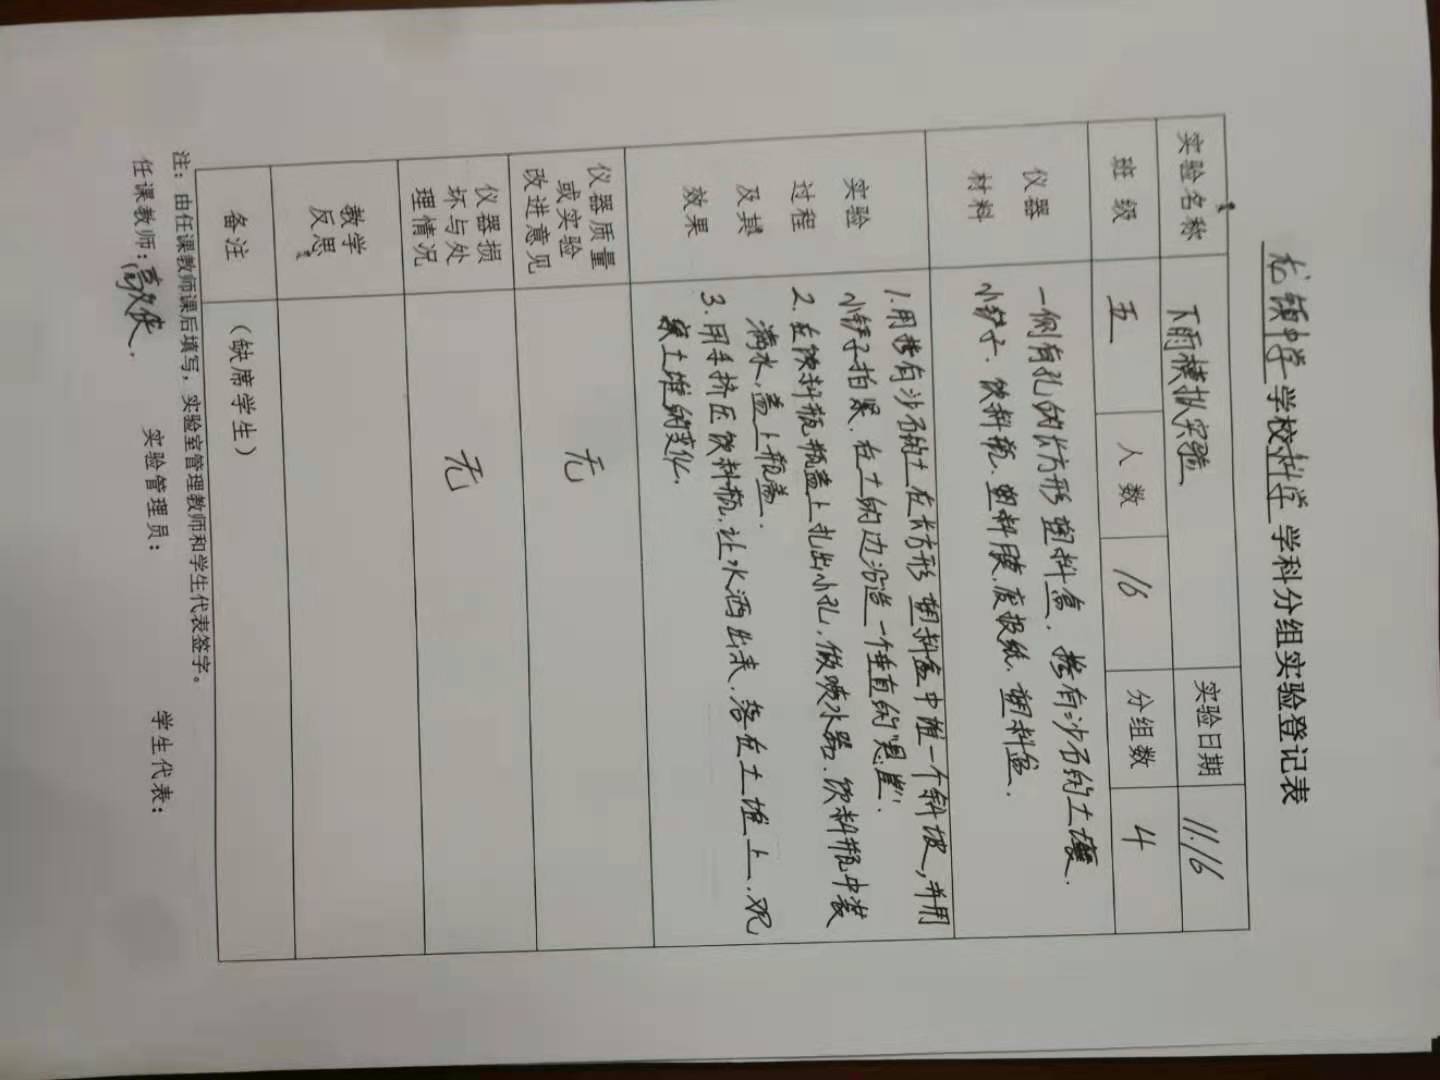 龙镇中学学校科学学科分组实验登记表
实验名称 下雨模拟实验 实验日期 11.16
班级 五 人数 16 分组数 4
仪器材料
一侧有孔的长方形塑料盒.掺有沙石的土壤.
小铲子.饮料瓶.塑料膜.废报纸.塑料盆.
实验过程及其效果
1.用掺有沙石的土在长方形塑料盒中堆一个斜坡,并用
小铲子拍紧.在土的边沿造一个垂直的"悬崖".
2.在饮料瓶瓶盖上扎出小孔,做喷水器.饮料瓶中装
满水,盖上瓶盖.
3.用手挤压饮料瓶.让水洒出来.落在土堆上.观
察土堆的变化.
仪器质量或实验改进意见 无
仪器损坏与处理情况 无
教学反思
备注 （缺席学生）
注：由任课教师课后填写，实验室管理教师和学生代表签字。
任课教师： 实验管理员： 学生代表：